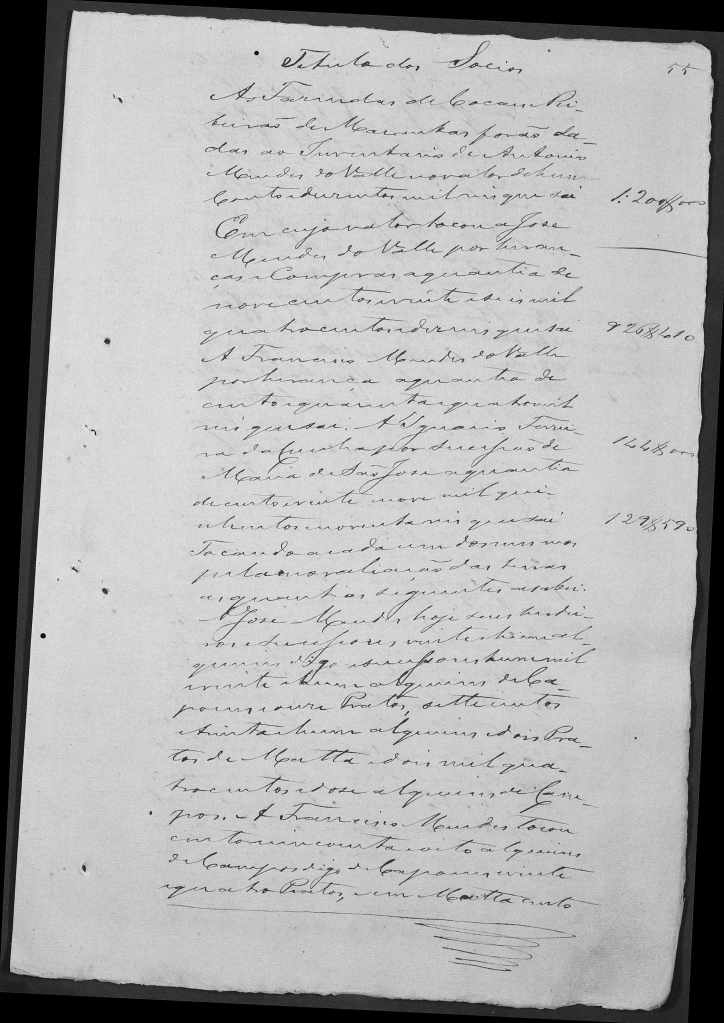 Titulo dos Socios
55
As Fazendas de Cocaes e Ri-
beirão de Mamentas forão da-
das ao Inventario de Antonio
Mendes do Valle no valor de hum
Conto e duzentos mil reis que sai 1:200$000
Em cujo valor tocou a Jose
Mendes do Valle por heran-
ças e Compras a quantia de
nove centos e vinte e seis mil
quatro centos e dez reis que sai 926$410
A Francisco Mendes do Valle
por herança a quantia de
cento e quarenta e quatro mil
reis que sai. A Ignacio Ferrei- 144$000
ra da Cunha por sucessão de
Maria de São Jose a quantia
de cento e vinte nove mil qui-
nhentos e noventa reis que sai 129$590
Tocando a cada um dos mesmos
pela no avaliação das terras
as quantias seguintes a saber:
A Jose Mendes hoje seus herdei-
ros e sucessores vinte e hum al-
queires digo e sucessores hum mil
e vinte e hum alqueires de Ca-
poens e onze Pratos, sette centos
e trinta e hum alqueires e dois Pra-
tos de Matta e dois mil qua-
tro centos e dose alqueires de Cam-
pos. A Francisco Mendes tocou
cento e cincoenta e oito alqueires
de Campos digo de Capoens e vinte
e quatro Pratos, e em Matta cento